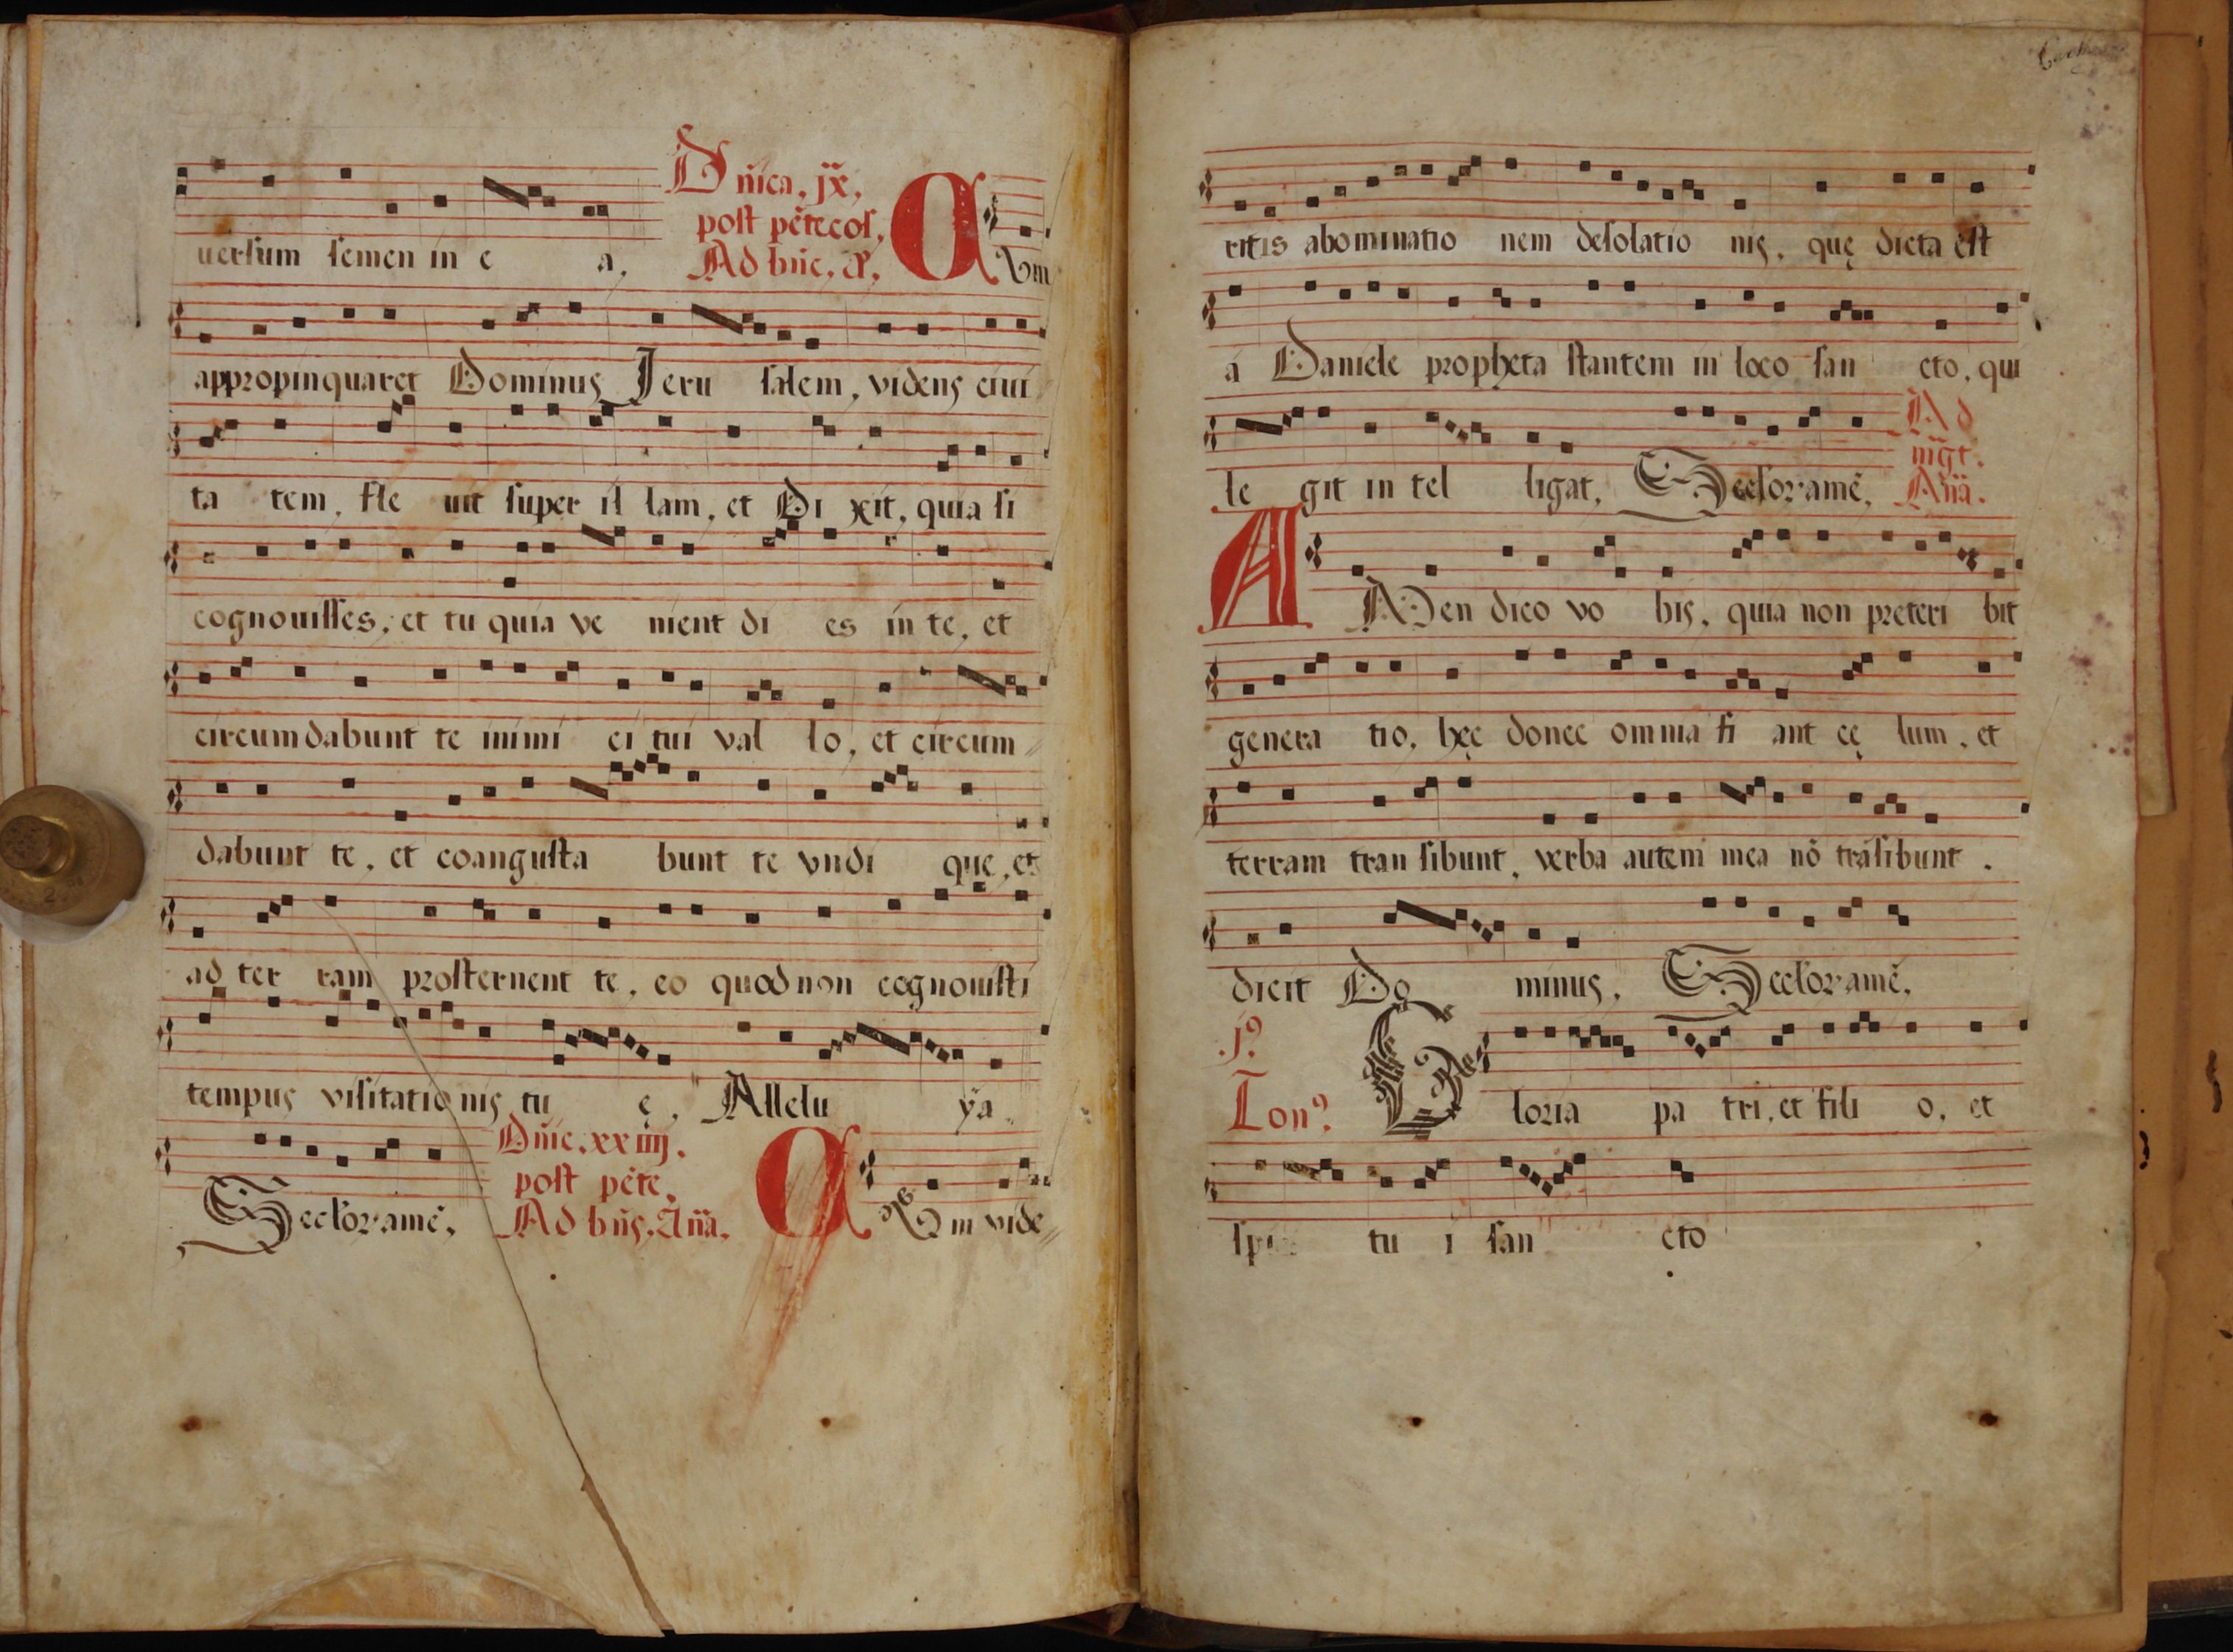 uersum semen in e a,
Dñica, jx,
post pẽtecos,
Ad bñc, a,
CVm
appropinquaret Dominus Jeru salem, videns ciui
ta tem, fle uit super il lam, et Di xit, quia si
cognouisses, et tu quia ve nient di es in te, et
circumdabunt te inimi ci tui val lo, et circum
dabunt te, et coangusta bunt te vndi que, et
ad ter ram prosternent te, eo quod non cognouisti
tempus visitatio nis tu ę, Allelu ya
Secl'or amẽ,
Dñic, xxiiij,
post pẽte,
Ad bñs, Añã,
CVm vide
ritis abominatio nem desolatio nis, quę dicta est
á Daniele propheta stantem in loco san cto, qui
le git in tel ligat, Secl'or amẽ,
Ad
mg̃t.
Añã.
AMen dico vo bis, quia non preteri bit
genera tio, hęc donec omnia fi ant cę lum, et
terram tran sibunt, verba autem mea nõ trãsibunt.
dicit Do minus, Secl'or amẽ,
.j.⁹
Ton⁹.
Gloria pa tri, et fili o, et
spi tu i san cto